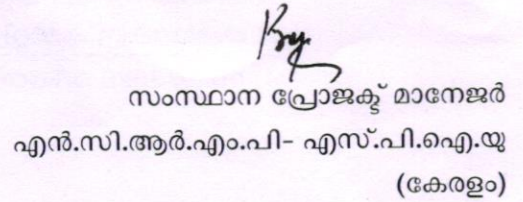 സംസ്ഥാന പ്രോജക്ട് മാനേജർ
എൻ.സി.ആർ.എം.പി- എസ്.പി.ഐ.യു
(കേരളം)